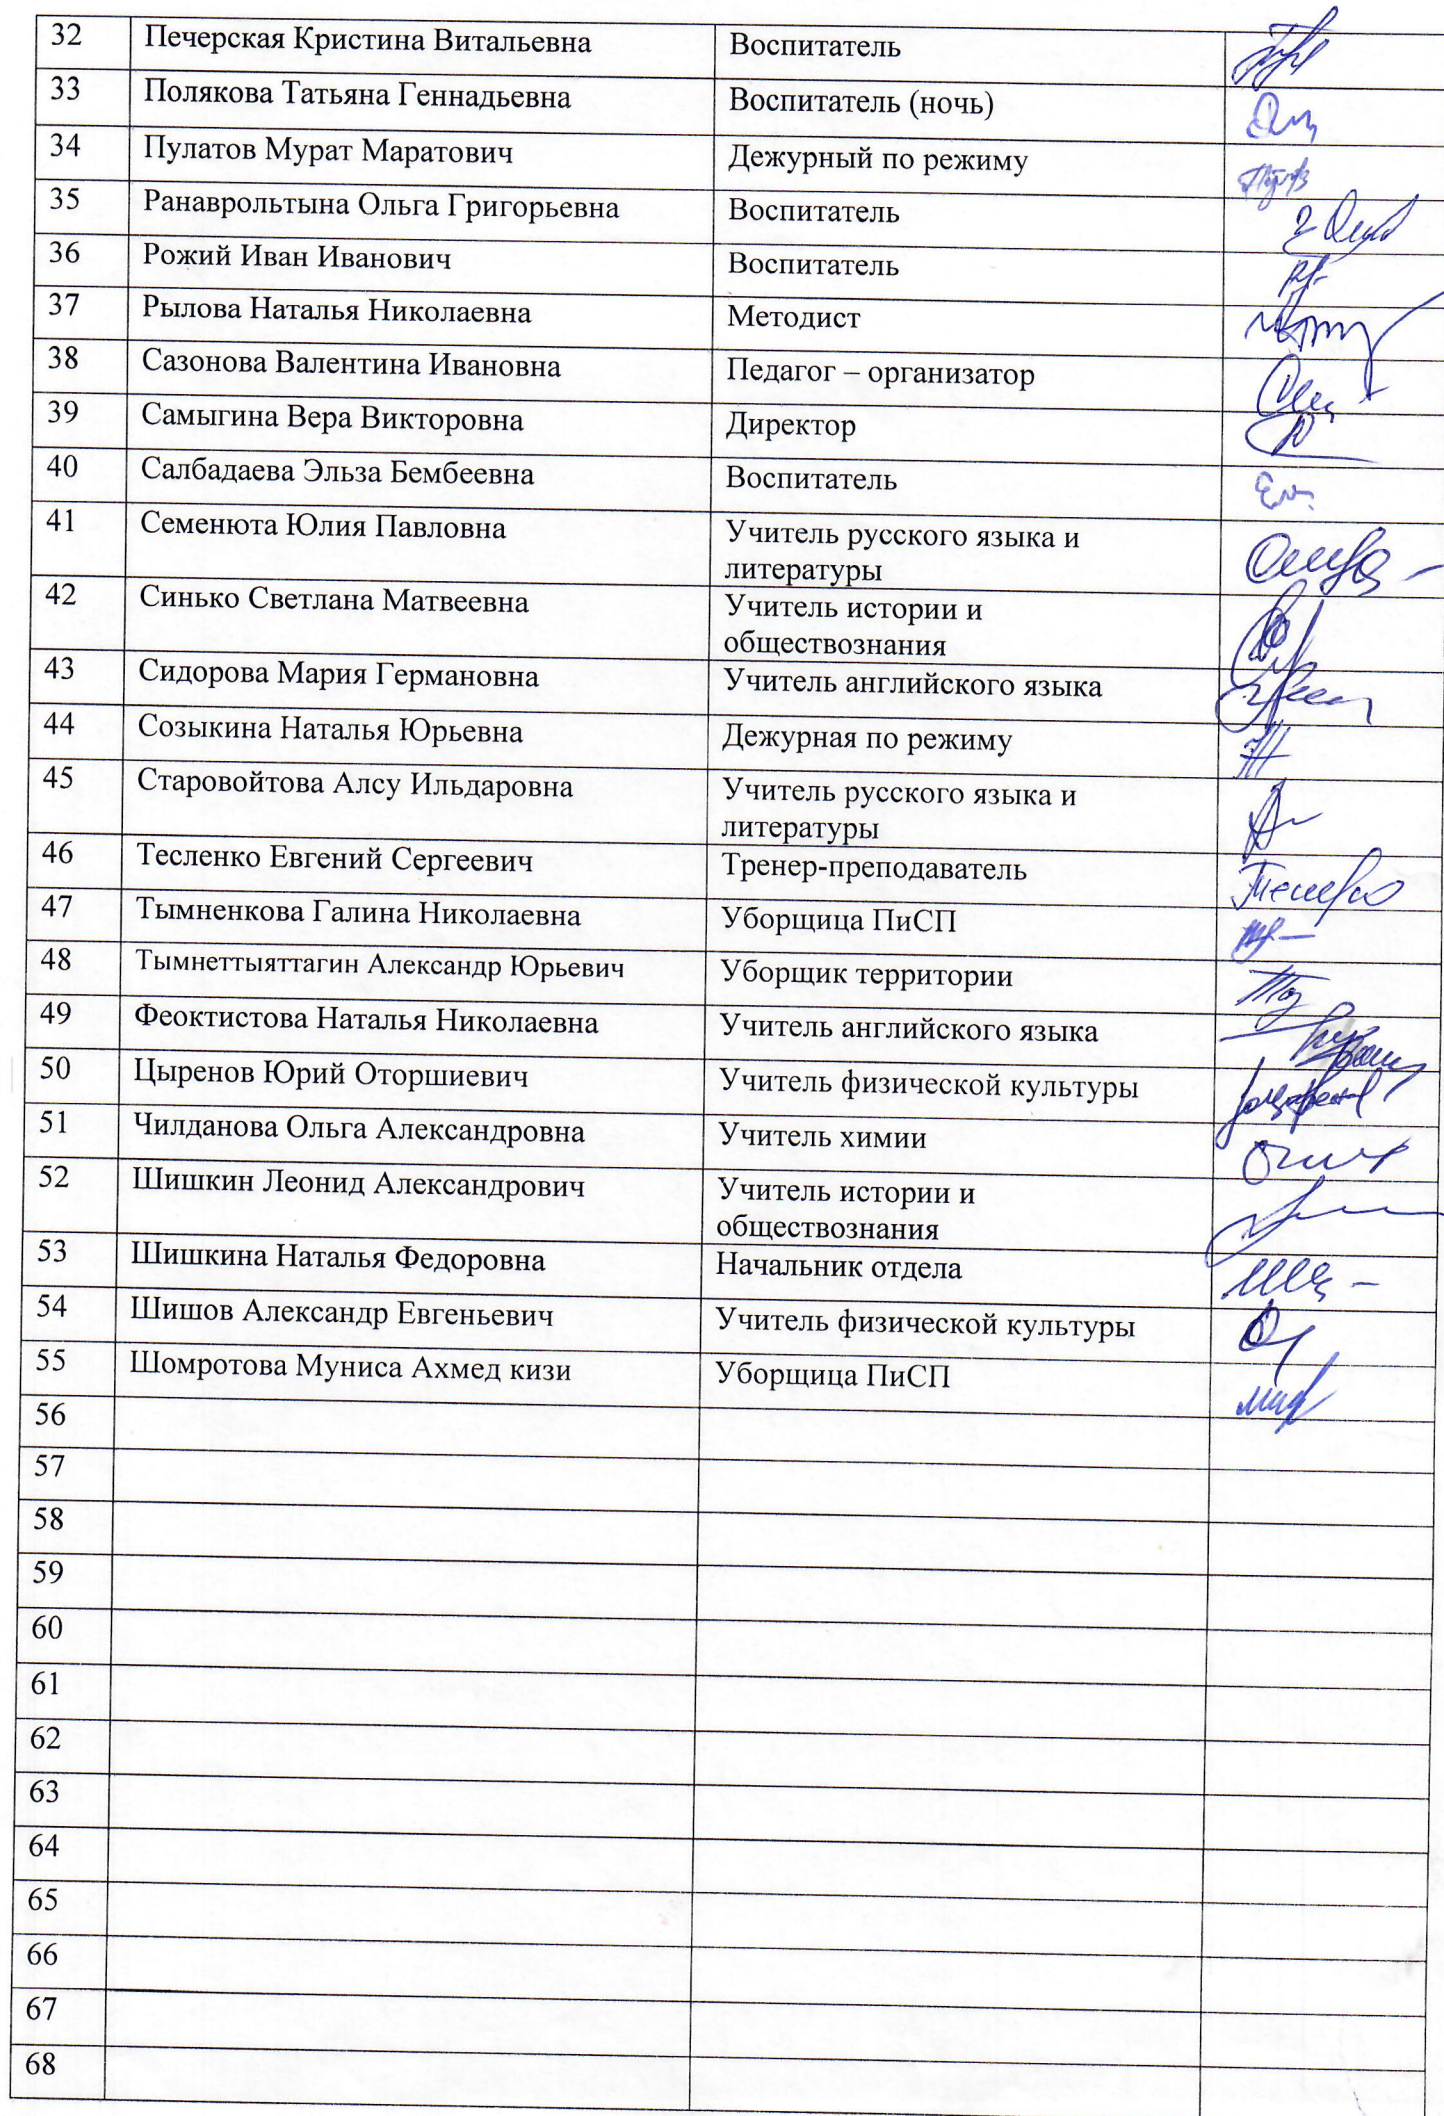 32 Печерская Кристина Витальевна Воспитатель
33 Полякова Татьяна Геннадьевна Воспитатель (ночь)
34 Пулатов Мурат Маратович Дежурный по режиму
35 Ранаврольтына Ольга Григорьевна Воспитатель
36 Рожий Иван Иванович Воспитатель
37 Рылова Наталья Николаевна Методист
38 Сазонова Валентина Ивановна Педагог – организатор
39 Самыгина Вера Викторовна Директор
40 Салбадаева Эльза Бембеевна Воспитатель
41 Семенюта Юлия Павловна Учитель русского языка и
литературы
42 Синько Светлана Матвеевна Учитель истории и
обществознания
43 Сидорова Мария Германовна Учитель английского языка
44 Созыкина Наталья Юрьевна Дежурная по режиму
45 Старовойтова Алсу Ильдаровна Учитель русского языка и
литературы
46 Тесленко Евгений Сергеевич Тренер-преподаватель
47 Тымненкова Галина Николаевна Уборщица ПиСП
48 Тымнеттыяттагин Александр Юрьевич Уборщик территории
49 Феоктистова Наталья Николаевна Учитель английского языка
50 Цыренов Юрий Оторшиевич Учитель физической культуры
51 Чилданова Ольга Александровна Учитель химии
52 Шишкин Леонид Александрович Учитель истории и
обществознания
53 Шишкина Наталья Федоровна Начальник отдела
54 Шишов Александр Евгеньевич Учитель физической культуры
55 Шомротова Муниса Ахмед кизи Уборщица ПиСП
56
57
58
59
60
61
62
63
64
65
66
67
68